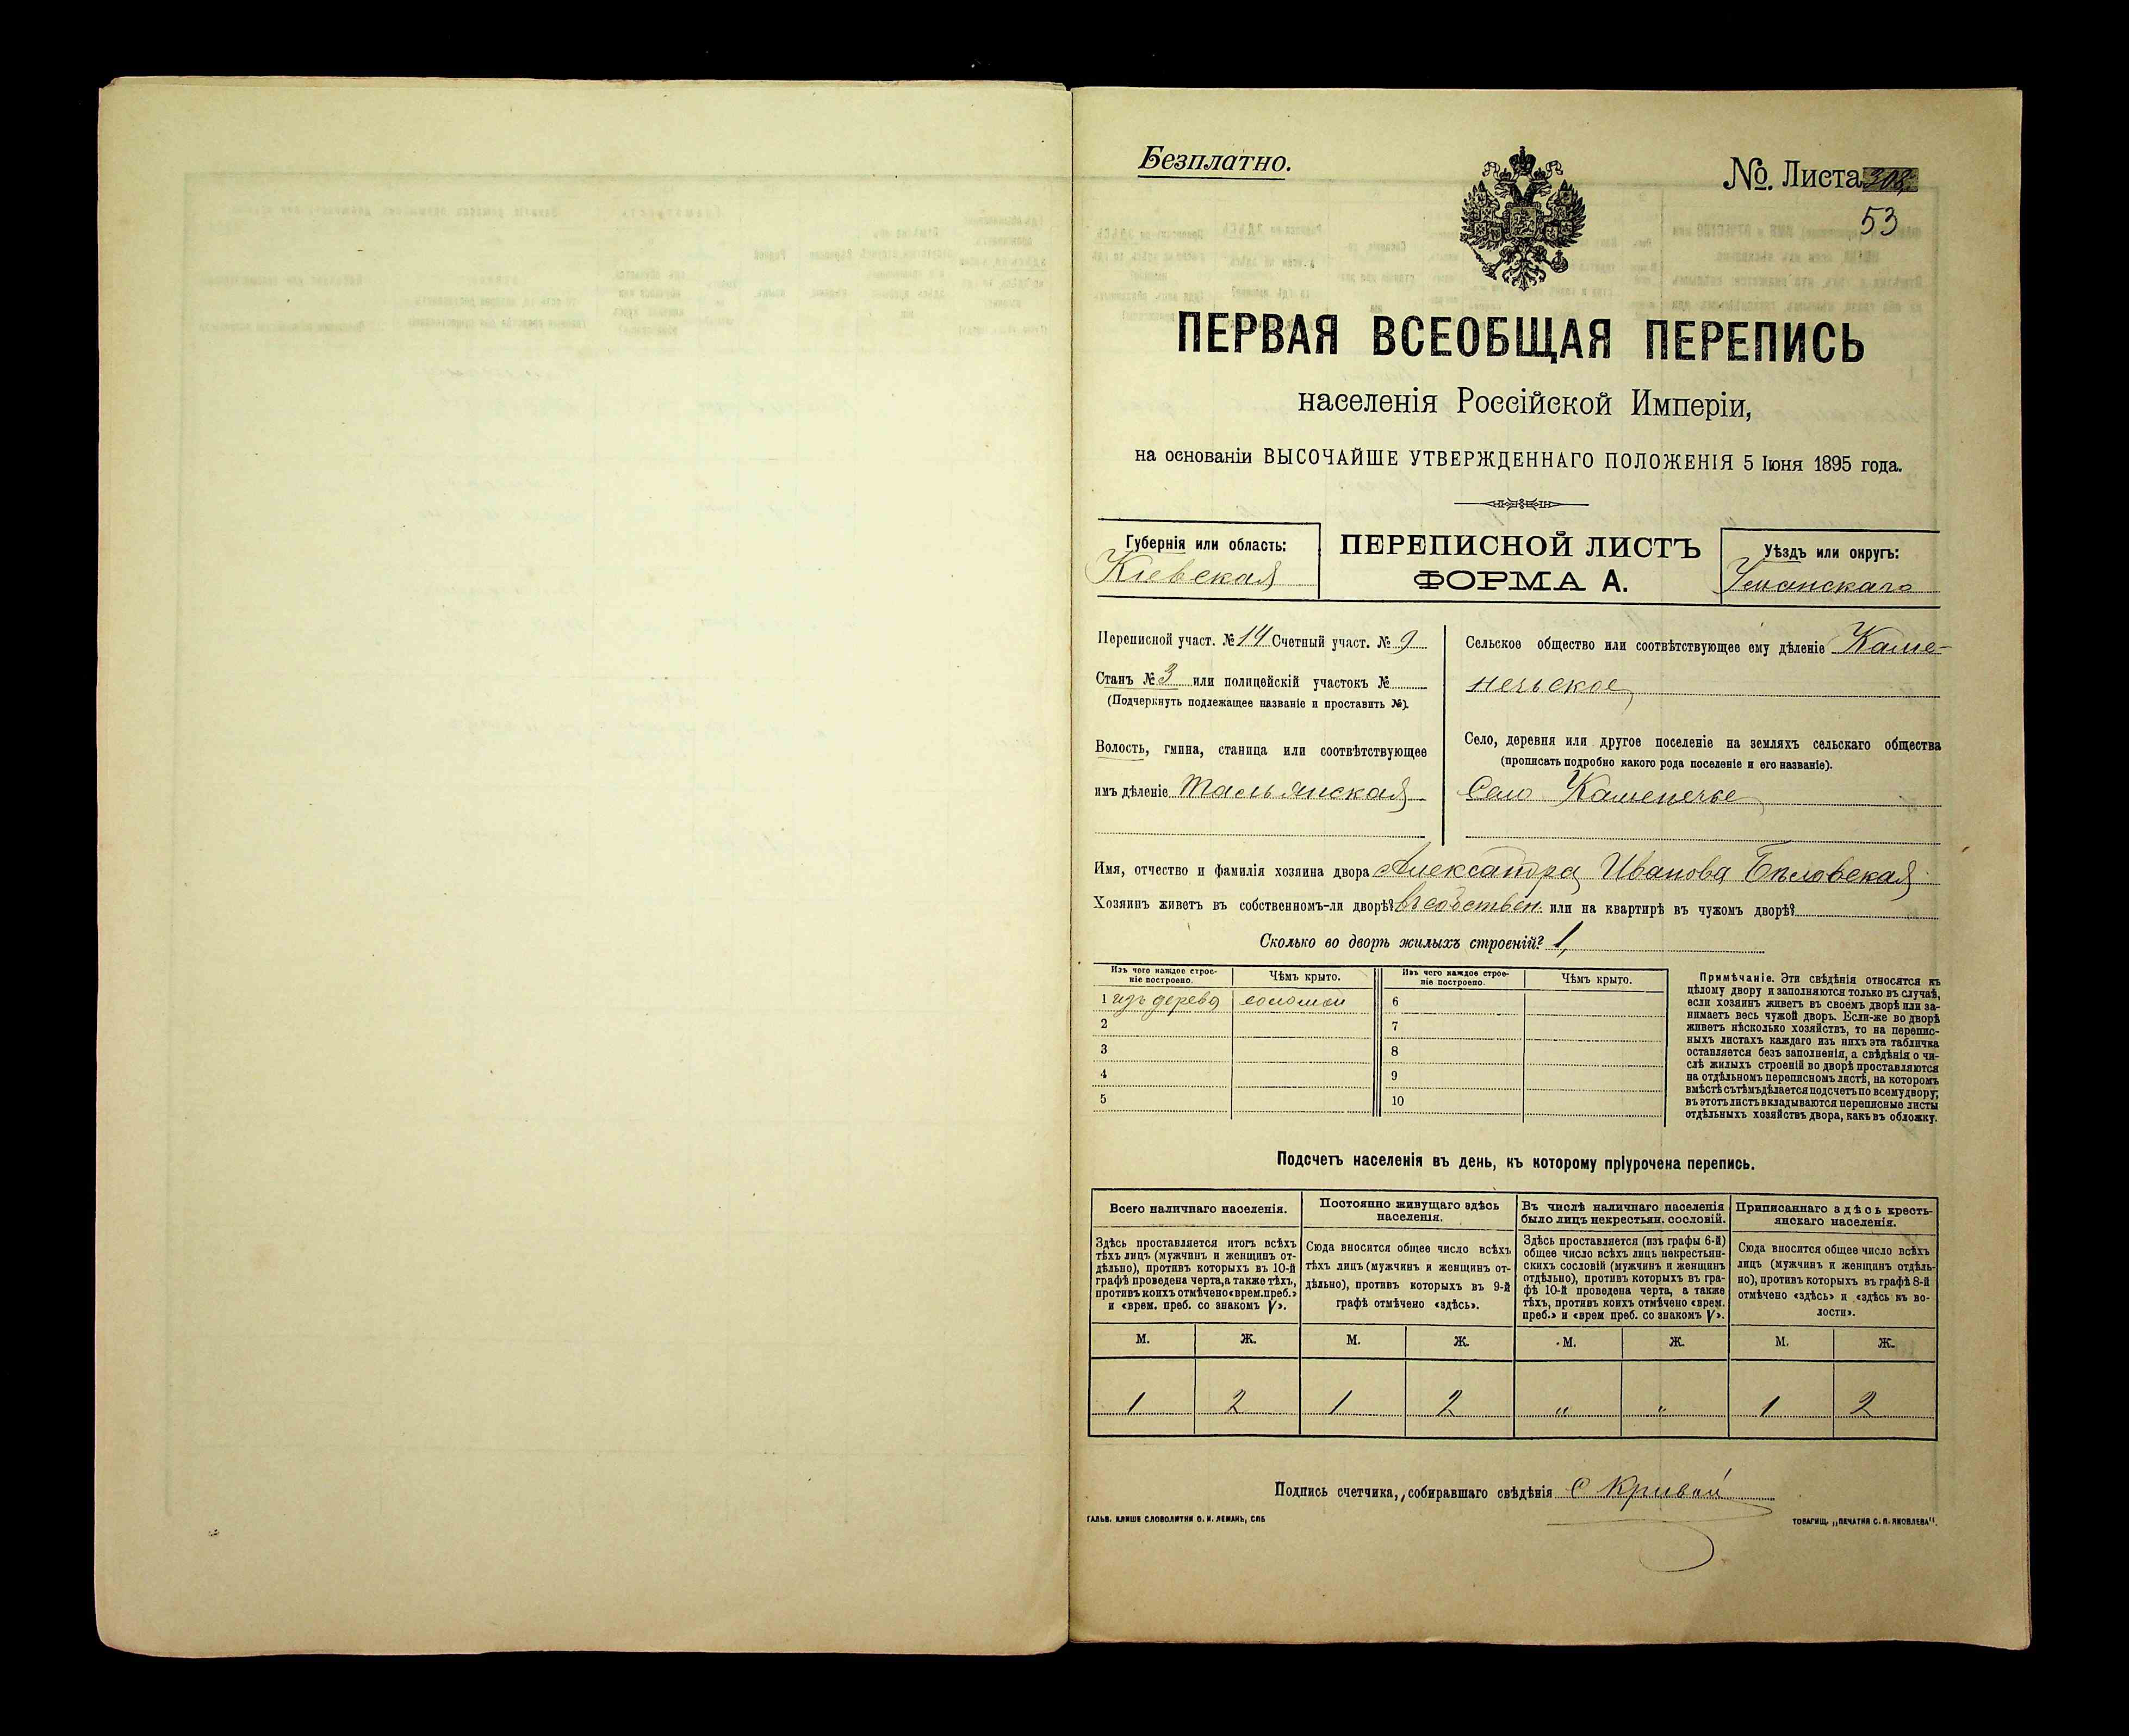 Безплатно.
№. Листа 308
53
ПЕРВАЯ ВСЕОБЩАЯ ПЕРЕПИСЬ
населенія Россійской Имперіи,
на основаніи ВЫСОЧАЙШЕ УТВЕРЖДЕННАГО ПОЛОЖЕНІЯ 5 Іюня 1895 года.
Губернія или область:
Кіевская
ПЕРЕПИСНОЙ ЛИСТЪ
ФОРМА А.
Уѣздъ или округъ:
Уманскаго
Переписной участ. № 14 Счетный участ. № 9
Станъ № 3 или полицейскій участокъ №
(Подчеркнуть подлежащее названіе и проставить №).
Волость, гмина, станица или соотвѣтствующее
имъ дѣленіе Тальянская
Сельское общество или соотвѣтствующее ему дѣленіе Каме-
нечьское
Село, деревня или другое поселеніе на земляхъ сельскаго общества
(прописать подробно какого рода поселеніе и его названіе).
Село Каменечье
Имя, отчество и фамилія хозяина двора Александра Иванова Бѣловская
Хозяинъ живетъ въ собственномъ-ли дворѣ? въ собствен. или на квартирѣ въ чужомъ дворѣ?
Сколько во дворѣ жилыхъ строеній? 1,
Изъ чего каждое строе-
ніе построено.
Чѣмъ крыто.
Изъ чего каждое строе-
ніе построено.
Чѣмъ крыто.
1 изъ дерева соломой 6
2 7
3 8
4 9
5 10
Примѣчаніе. Эти свѣдѣнія относятся къ
цѣлому двору и заполняются только въ случаѣ,
если хозяинъ живетъ въ своемъ дворѣ или за-
нимаетъ весь чужой дворъ. Если-же во дворѣ
живетъ нѣсколько хозяйствъ, то на перепис-
ныхъ листахъ каждаго изъ нихъ эта табличка
оставляется безъ заполненія, а свѣдѣнія о чи-
слѣ жилыхъ строеній во дворѣ проставляются
на отдѣльномъ переписномъ листѣ, на которомъ
вмѣстѣ съ тѣмъ дѣлается подсчетъ по всему двору;
въ этотъ листъ вкладываются переписные листы
отдѣльныхъ хозяйствъ двора, какъ въ обложку.
Подсчетъ населенія въ день, къ которому пріурочена перепись.
Всего наличнаго населенія.
Здѣсь проставляется итогъ всѣхъ
тѣхъ лицъ (мужчинъ и женщинъ от-
дѣльно), противъ которыхъ въ 10-й
графѣ проведена черта, а также тѣхъ,
противъ коихъ отмѣчено «врем. преб.»
и «врем. преб. со знакомъ V».
Постоянно живущаго здѣсь
населенія.
Сюда вносится общее число всѣхъ
тѣхъ лицъ (мужчинъ и женщинъ от-
дѣльно), противъ которыхъ въ 9-й
графѣ отмѣчено «здѣсь».
Въ числѣ наличнаго населенія
было лицъ некрестьян. сословій.
Здѣсь проставляется (изъ графы 6-й)
общее число всѣхъ лицъ некрестьян-
скихъ сословій (мужчинъ и женщинъ
отдѣльно), противъ которыхъ въ гра-
фѣ 10-й проведена черта, а также
тѣхъ, противъ коихъ отмѣчено «врем.
преб.» и «врем преб. со знакомъ V».
Приписаннаго здѣсь кресть-
янскаго населенія.
Сюда вносится общее число всѣхъ
лицъ (мужчинъ и женщинъ отдѣль-
но), противъ которыхъ въ графѣ 8-й
отмѣчено «здѣсь» и «здѣсь къ во-
лости».
М. Ж. М. Ж. М. Ж. М. Ж.
1 2 1 2 " " 1 2
Подпись счетчика, собиравшаго свѣдѣнія С Кривой
ГАЛЬВ. КЛИШЕ СЛОВОЛИТНИ О. И. ЛЕМАНЪ, СПБ
ТОВАРИЩ. „ПЕЧАТНЯ С. П. ЯКОВЛЕВА".